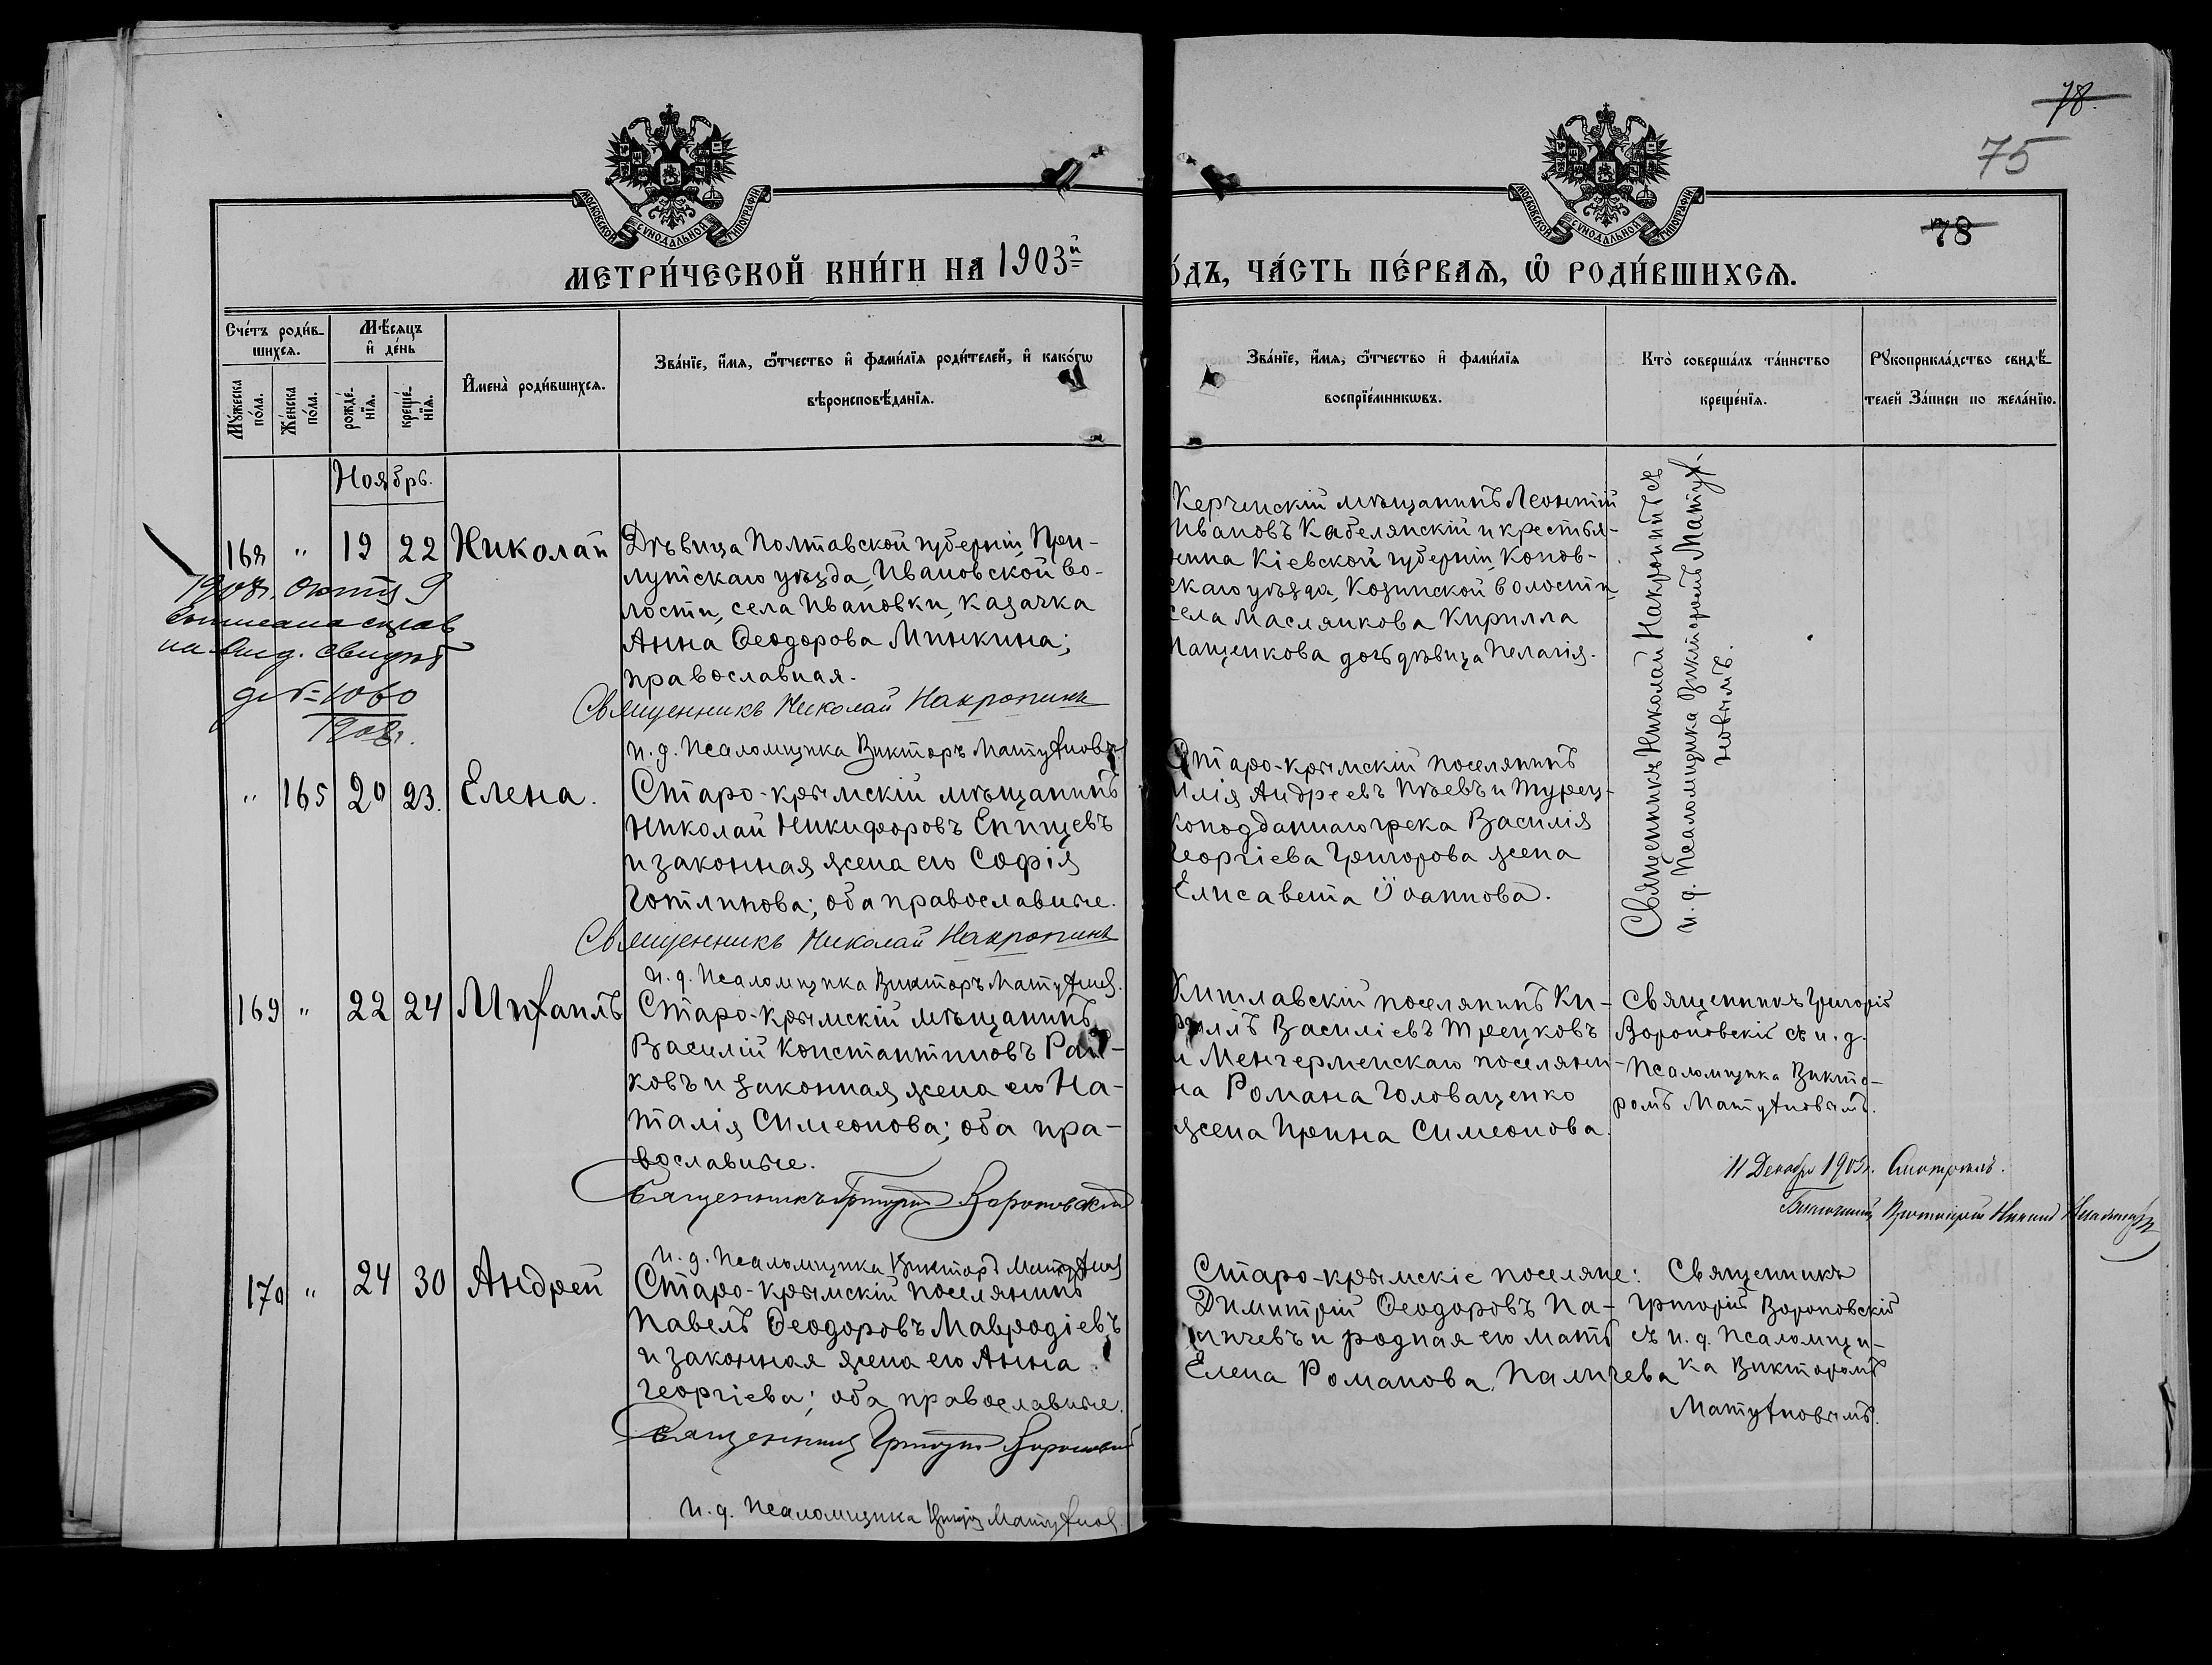 78.
75
78
МОСКОВСКОЙ СѴНОДАЛЬНОЙ ТИПОГРАФІИ
МОСКОВСКОЙ СѴНОДАЛЬНОЙ ТИПОГРАФІИ
МЕТРИ́ЧЕСКОЙ КНИ́ГИ НА 1903й
О́ДЪ, ЧА́СТЬ ПЕ́РВАѦ, Ѡ҆ РОДИ́ВШИХСѦ.
Сче́тъ роди́в-
шихсѧ.
Мꙋ́жеска по́ла.
Же́нска по́ла.
Мѣ́сѧцъ
и҆ де́нь
рожде́-
нїѧ.
креще́-
нїѧ.
И҆мена̀ роди́вшихсѧ.
Зва́нїе, и҆́мѧ, ѻ҆́тчество и҆ фами́лїѧ роди́телей, и҆ како́гѡ
вѣроисповѣ́данїѧ.
Зва́нїе, и҆́мѧ, ѻ҆́тчество и҆ фами́лїѧ
воспрїе́мникѡвъ.
Кто̀ соверша́лъ та́инство
креще́нїѧ.
Рꙋкоприкла́дство свидѣ́-
телей за́писи по жела́нїю.
Ноябрь.
168 " 19 22 Николай
Дѣвица Полтавской губерніи, При-
лутскаго уѣзда, Ивановской во-
лости, села Ивановки, казачка
Анна Ѳеодорова Минкина;
православная.
Священникъ Николай Накропинъ
и. д. Псаломщика Викторъ Матухновъ
1908г.
9
на
1060
1908г.
Керченскій мѣщанинъ Леонтій
Ивановъ Кабелянскій и крестья-
нина Кіевской губерніи, Конов-
скаго уѣзда, Козинской волости,
села Маслянкова Кирилла
Пащенкова дочь дѣвица Пелагія.
Священникъ Николай Накропинъ съ
и. д. Псаломщика Викторомъ Матух-
новымъ.
" 165 20 23. Елена.
Старо-крымскій мѣщанинъ
Николай Никифоровъ Епищевъ
и законная жена его Софія
Готлипова; оба православные.
Священникъ Николай Накропинъ
и. д. Псаломщика Викторъ Матухнов.
Старо-крымскій поселянинъ
Илія Андреевъ Пѣевъ и турец-
коподданнаго грека Василія
Георгіева Григорова жена
Елисавета Іоаннова.
169 " 22 24 Михаилъ
Старо-крымскій мѣщанинъ
Василій Константиновъ Рай-
ковъ и законная жена его На-
талія Симеонова; оба пра-
вославные.
Священникъ Григорій Вороновскій
и. д. Псаломщика Викторъ Матухнов
Кишлавскій поселянинъ Ки-
риллъ Василіевъ Трецковъ
и Менгерменскаго поселяни-
на Романа Головащенко
жена Ирина Симеонова.
Священникъ Григорій
Вороновскій съ и. д.
Псаломщика Викто-
ромъ Матухновымъ.
11 Декабря 1903г. Смотрѣлъ.
Благочинный Протоіерей
170 " 24 30 Андрей
Старо-крымскій поселянинъ
Павелъ Ѳеодоровъ Мавродіевъ
и законная жена его Анна
Георгіева; оба православные.
Священникъ Григорій Вороновскій
и. д. Псаломщика Викторъ Матухнов
Старо-крымскіе поселяне:
Димитрій Ѳеодоровъ Па-
ничевъ и родная его мать
Елена Романова Паличева
Священникъ
Григорій Вороновскій
съ и. д. Псаломщи-
ка Викторомъ
Матухновымъ.